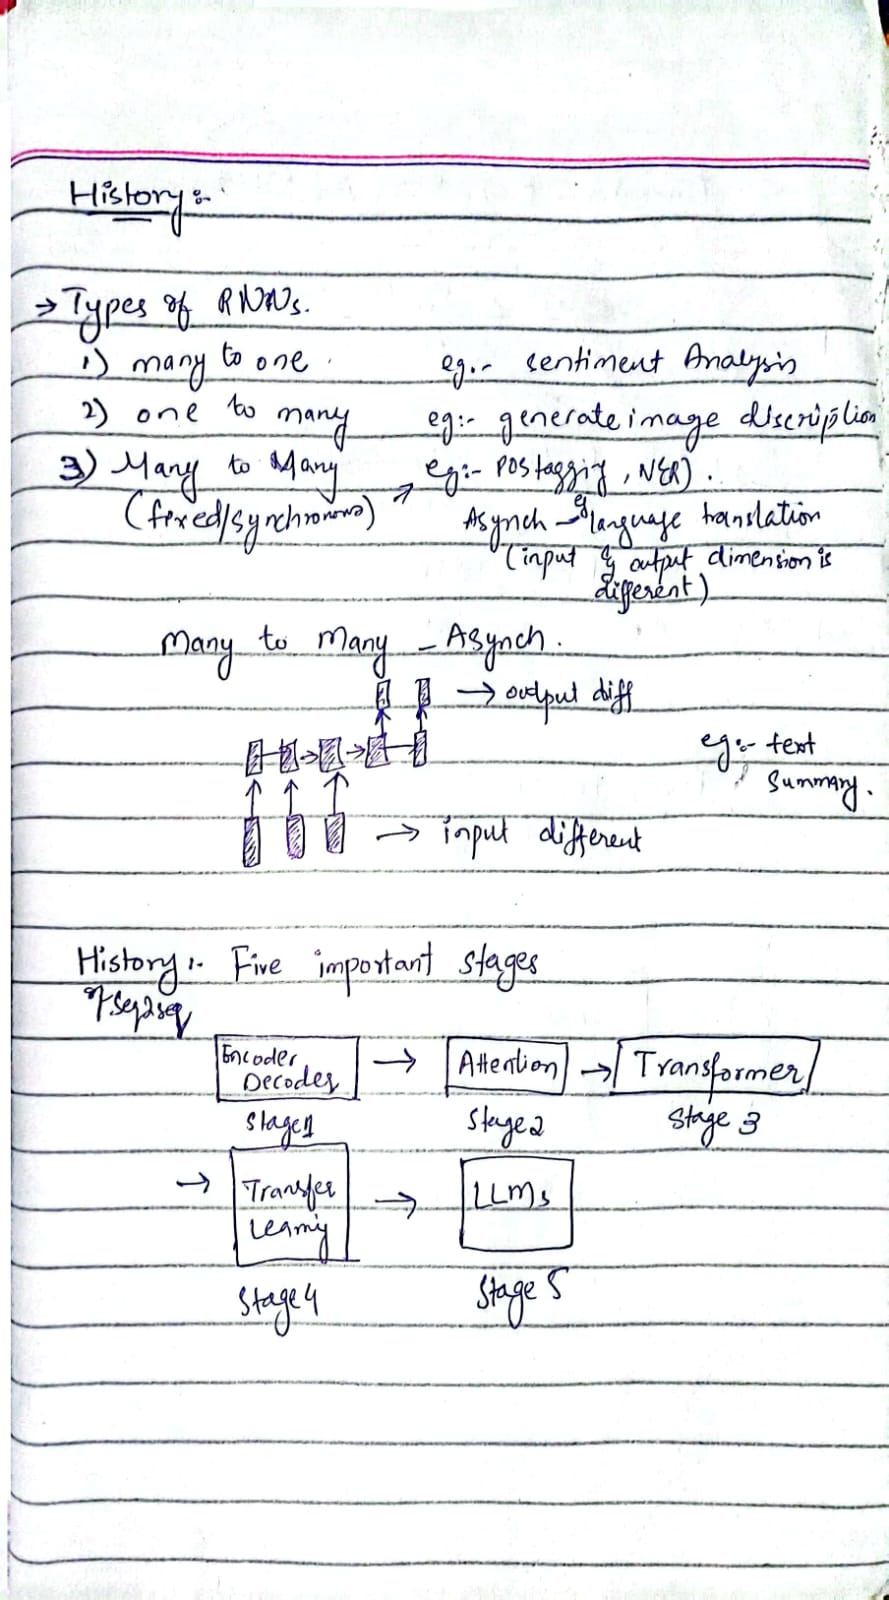 History :-
→ Types of RNNs.
1) many to one. eg:- sentiment Analysis
2) one to many eg:- generate image discription
3) Many to Many → eg:- POS tagging, NER).
(fixed/synchronous) Asynch → eg language translation
(input & output dimension is
different)
Many to Many - Asynch.
→ output diff
eg:- text
summary.
→ input different
History :- Five important stages
of Seq2seq
Encoder → Attention → Transformer
Decoder
Stage 1 Stage 2 Stage 3
→ Transfer → LLMs
Learnig
Stage 4 Stage 5